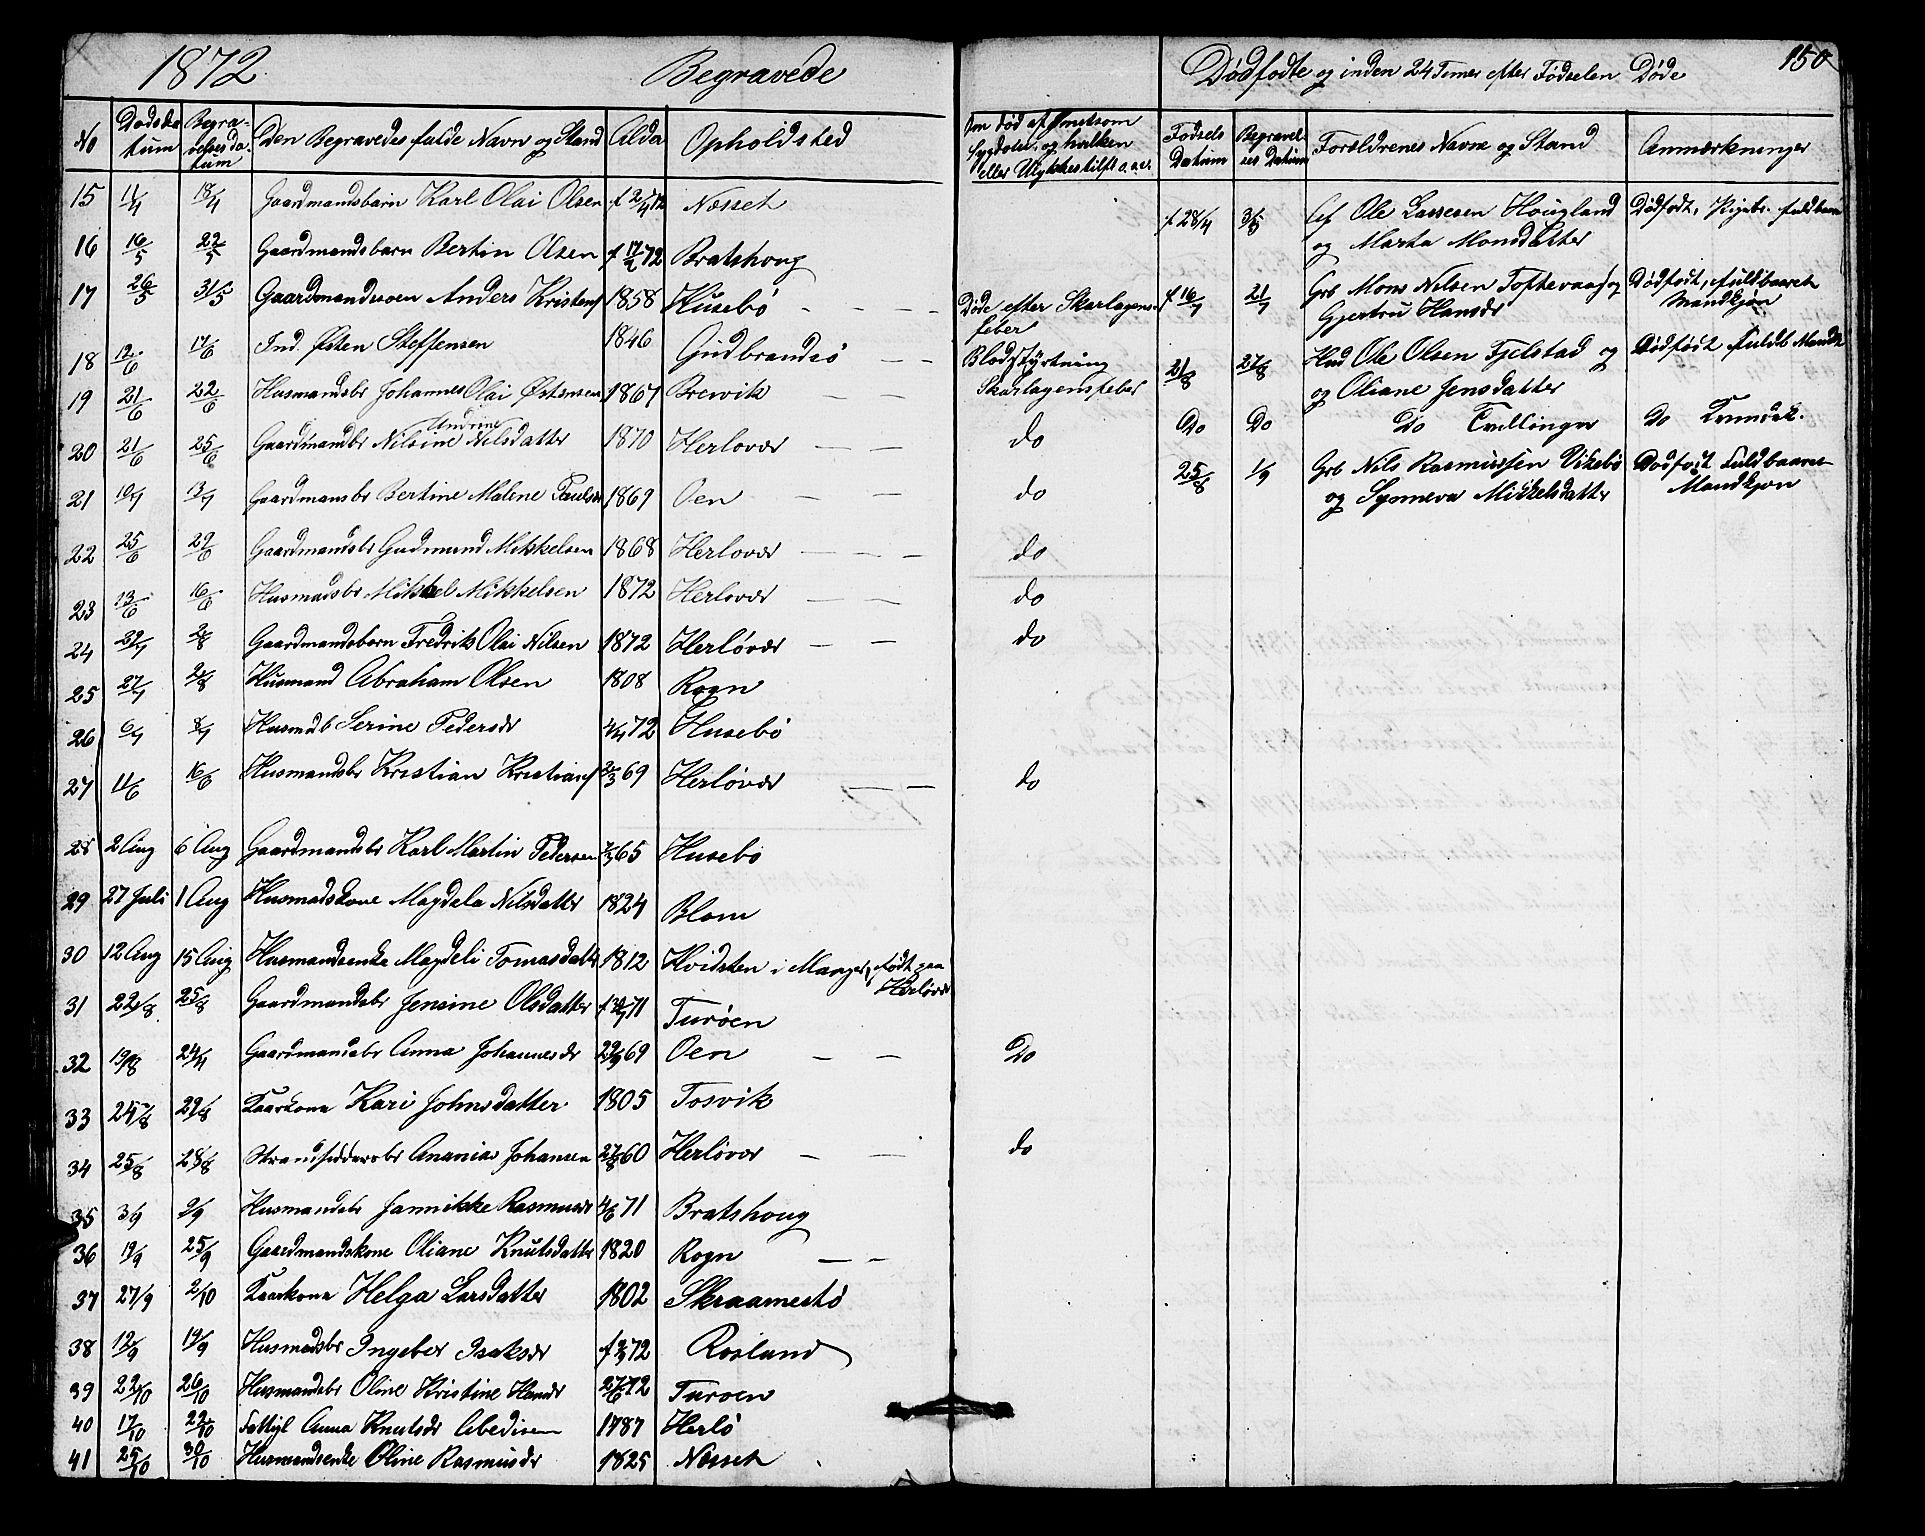 1872 Begravede
No Dødsdatum Begravelsesdatum Den Begravedes fulde Navn og Stand Alder Opholdsted Om død af smitsom Sygdom, og hvilken eller Ulykkestilf. o.a.v.
15 11/4 18/4 Gaardmandsbarn Karl Olai Olsen f 2/4 72 Nesset
16 16/5 22/5 Gaardmandsbarn Bertin Olsen f 17/2 72 Bratshoug
17 26/5 31/5 Gaardmandssøn Anders Kristens 1858 Husebö - - - - Döde efter Skarlagensfeber
18 12/6 17/6 Ind. Østen Steffensen 1846 Gudbrandsö - - Blodstyrtning
19 21/6 22/6 Husmandsbr Johannes Olai Østensen 1867 Brewik - - Skarlagensfeber
20 21/6 25/6 Gaardmandbr Nilsine Andrine Nilsdatter 1870 Herlovær - - do
21 10/7 13/7 Gaardmansbr Bertine Malene Paulsdr 1869 Oen - - do
22 25/6 29/6 Gaardmandsbr Gudmund Mikkelsen 1868 Herlovær - - - do
23 13/6 16/6 Husmadsbr Mikkel Mikkelsen 1872 Herlovær - - do
24 29/7 2/8 Gaardmandsbarn Fredrik Olai Nilsen 1872 Herlövær - - do
25 27/7 2/8 Husmand Abraham Olsen 1808 Rogn
26 6/7 8/7 Husmdb Serine Pedersdr 4/4 72 Husebö
27 11/6 16/6 Husmandsbr Kristian Kristians 2/3 69 Herlövær - - do
28 2 Aug 6 Aug Gaardmandsbr Karl Martin Pedersen 7/3 65 Husebo
29 27 Juli 1 Aug Husmadskone Magdela Nilsdatter 1824 Blom
30 12 Aug 15 Aug Husmandsenke Magdeli Tomasdattr 1812 Hvidsten i Manger, født paa Herlövær
31 22/8 25/8 Gaardmandsbr Jensine Olsdatter f 30/7 71 Turöen
32 19/8 24/4 Gaardmandsbr Anna Johannesdr 29/9 69 Oen - - Do
33 24/8 29/8 Kaarkona Kari Johnsdatter 1805 Tosvik
34 25/8 28/8 Strandsidderbr Ananias Johansen 27/8 60 Herlövær - - do
35 3/9 9/9 Husmandsbr Jannikke Rasmusdr 4/6 71 Bratshoug
36 19/9 25/9 Gaardmandskone Oliane Knutsdatter 1820 Rogn - -
37 27/9 2/10 Kaarkona Helga Larsdatter 1802 Skraamestö
38 12/9 19/9 Husmadsbr Ingeber Isaksdr f 2/3 72 Rosland
39 22/10 26/10 Husmandsbr Oline Kristine Hansdr 27/6 72 Turoen
40 17/10 22/10 Fattigl Anna Knutsdr Abedisen 1787 Herlö
41 25/10 30/10 Husmandsenke Oline Rasmusdr 1825 Nesset
150
Dødfødte og inden 24 Timer efter Fødselen Døde
Fødsels Datum Begravelses Datum Forældrenes Navne og Stand Anmærkninger
f 28/4 3/8 Ole Lassesen Hougland og Marta Monsdatter Dødfødt, Pigebr. fuldbaa
f 16/7 21/7 Grb Mons Nilsen Toftevaag og Gjertru Hansdr Dødfødt, fuldbaaret Mandkjøn
21/8 27/8 Husd Ole Olsen Fjelstad og og Oliane Jensdatter Dødfødt fuldb Mandk
Do Do Do Tvillinger Do Kvindek.
25/8 1/9 Grb Nils Rasmussen Vikebö og Synneva Mikkelsdatter Dødfødt fuldbaaret Mandkjøn